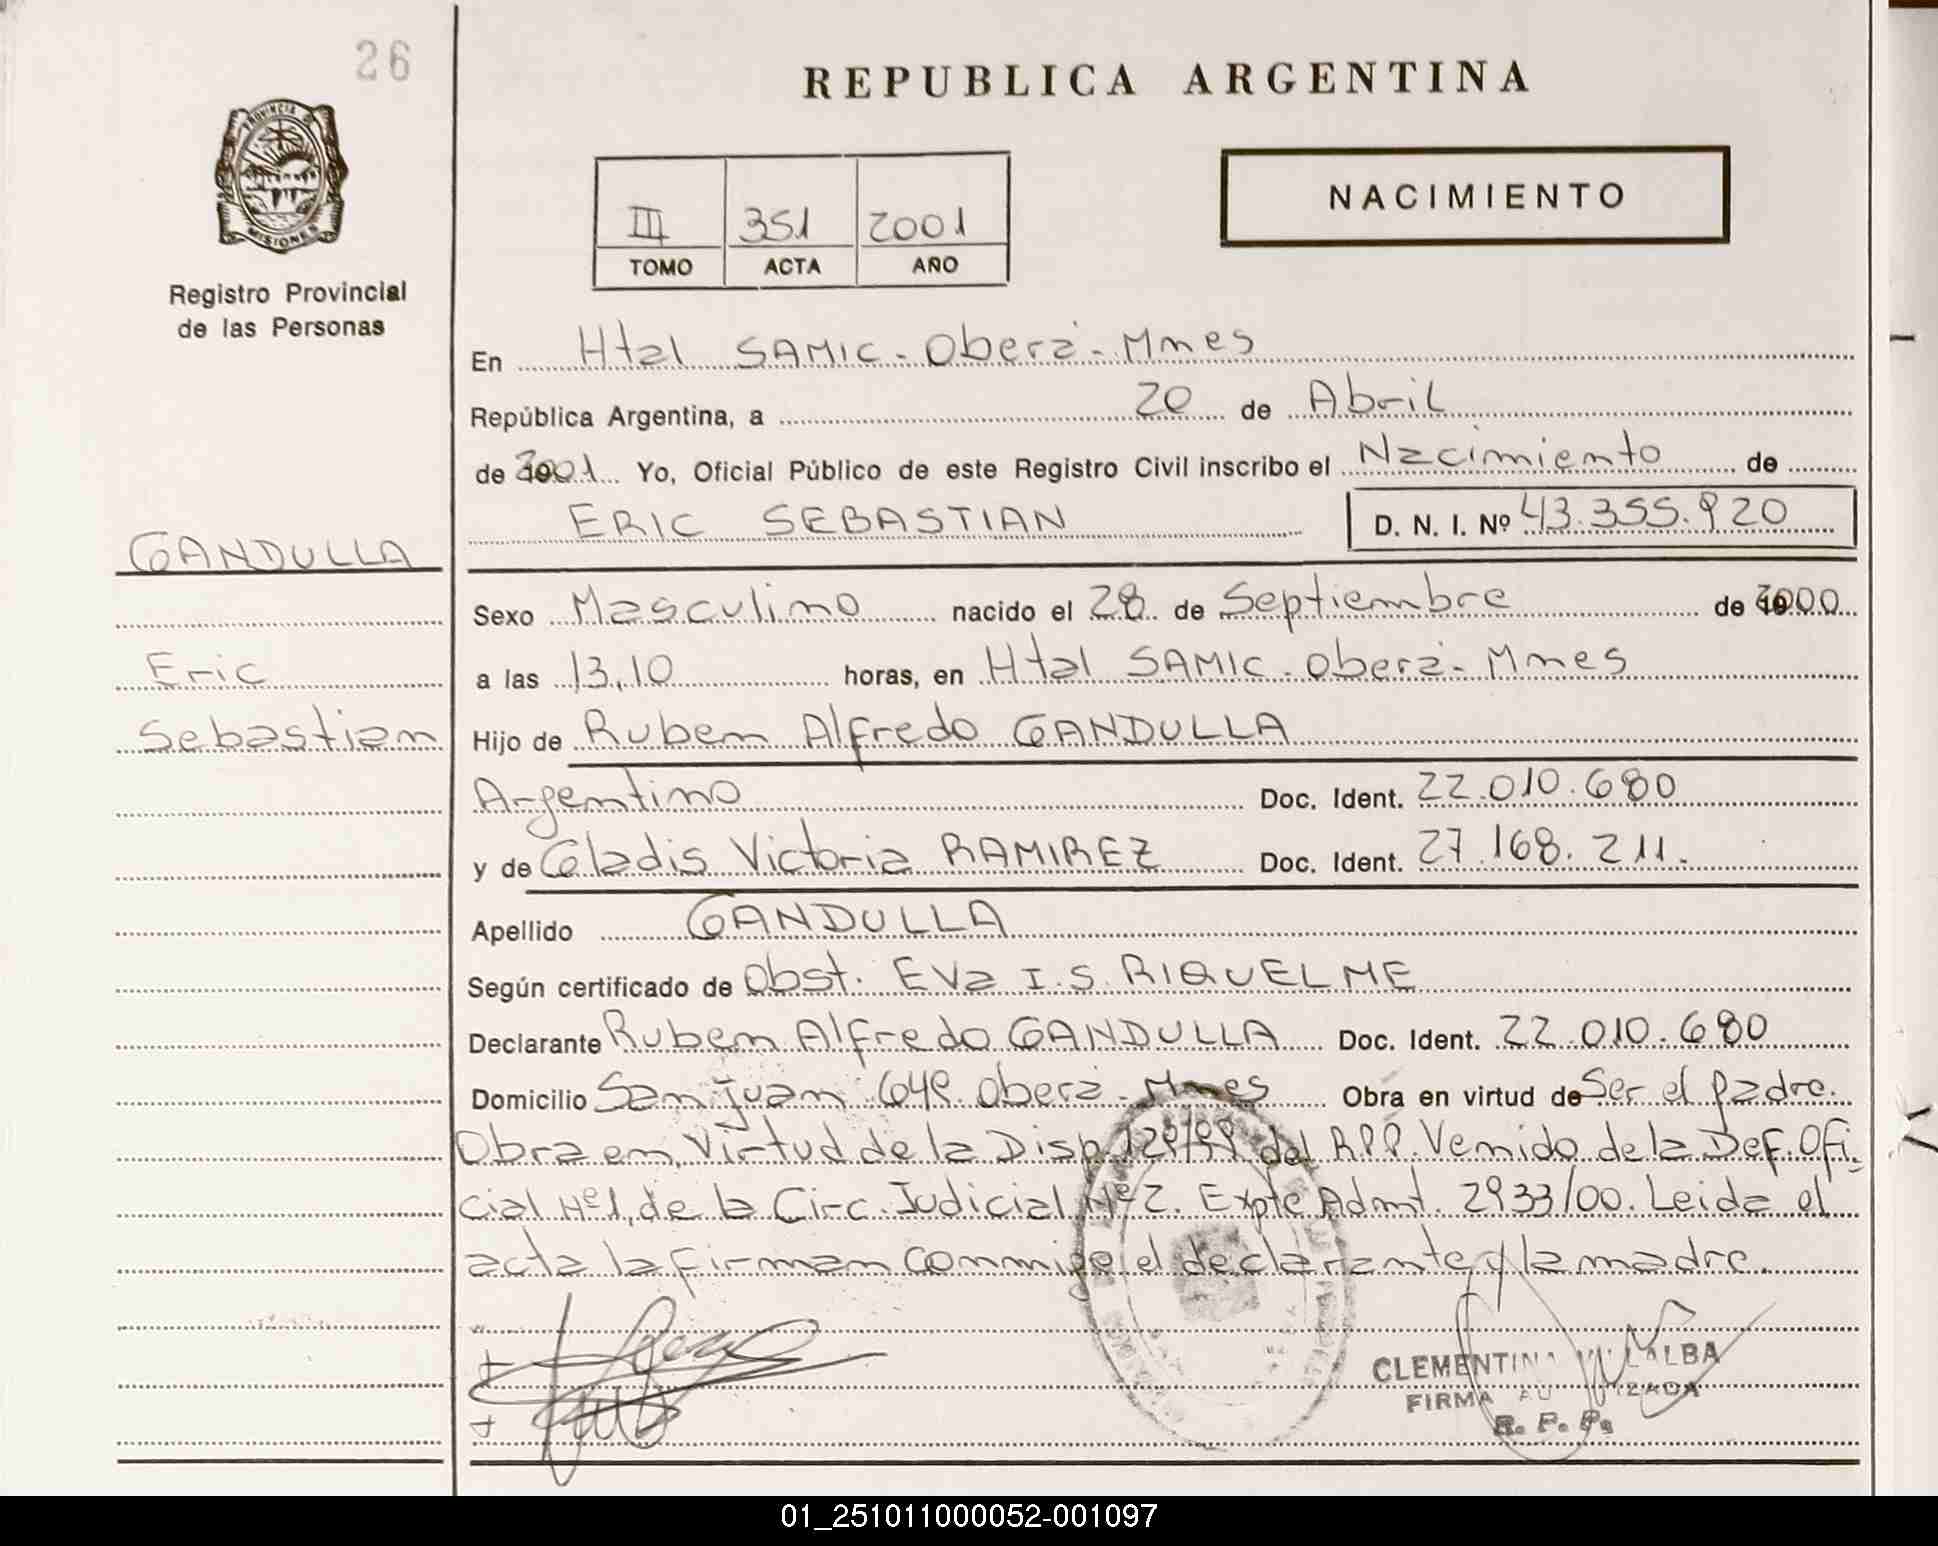 26
REPUBLICA ARGENTINA
PROVINCIA DE
MISIONES
Registro Provincial
de las Personas
NACIMIENTO
III 351 2001
TOMO ACTA AÑO
En Htal SAMIC - Oberá - Mnes
República Argentina, a 20 de Abril
de 2001 Yo, Oficial Público de este Registro Civil inscribo el Nacimiento de
ERIC SEBASTIAN D. N. I. Nº 43.355.920
GANDULLA
Eric
Sebastian
Sexo Masculino nacido el 28 de Septiembre de 2000
a las 13,10 horas, en Htal SAMIC - Oberá - Mnes
Hijo de Ruben Alfredo GANDULLA
Argentino Doc. Ident. 22.010.680
y de Gladis Victoria RAMIREZ Doc. Ident. 27.168.211.
Apellido GANDULLA
Según certificado de Obst. Eva I.S. RIQUELME
Declarante Ruben Alfredo GANDULLA Doc. Ident. 22.010.680
Domicilio San Juan 649. Oberá - Mnes Obra en virtud de Ser el padre.
Obra en Virtud de la Disp. 129/99 del R.P.P. Venido de la Def. Ofi-
cial Nº1, de la Circ. Judicial Nº2. Expte Admt. 2933/00. Leida el
acta la firman conmigo el declarante y la madre.
CLEMENTINA VILLALBA
FIRMA AUTORIZADA
R. P. P.
01_251011000052-001097